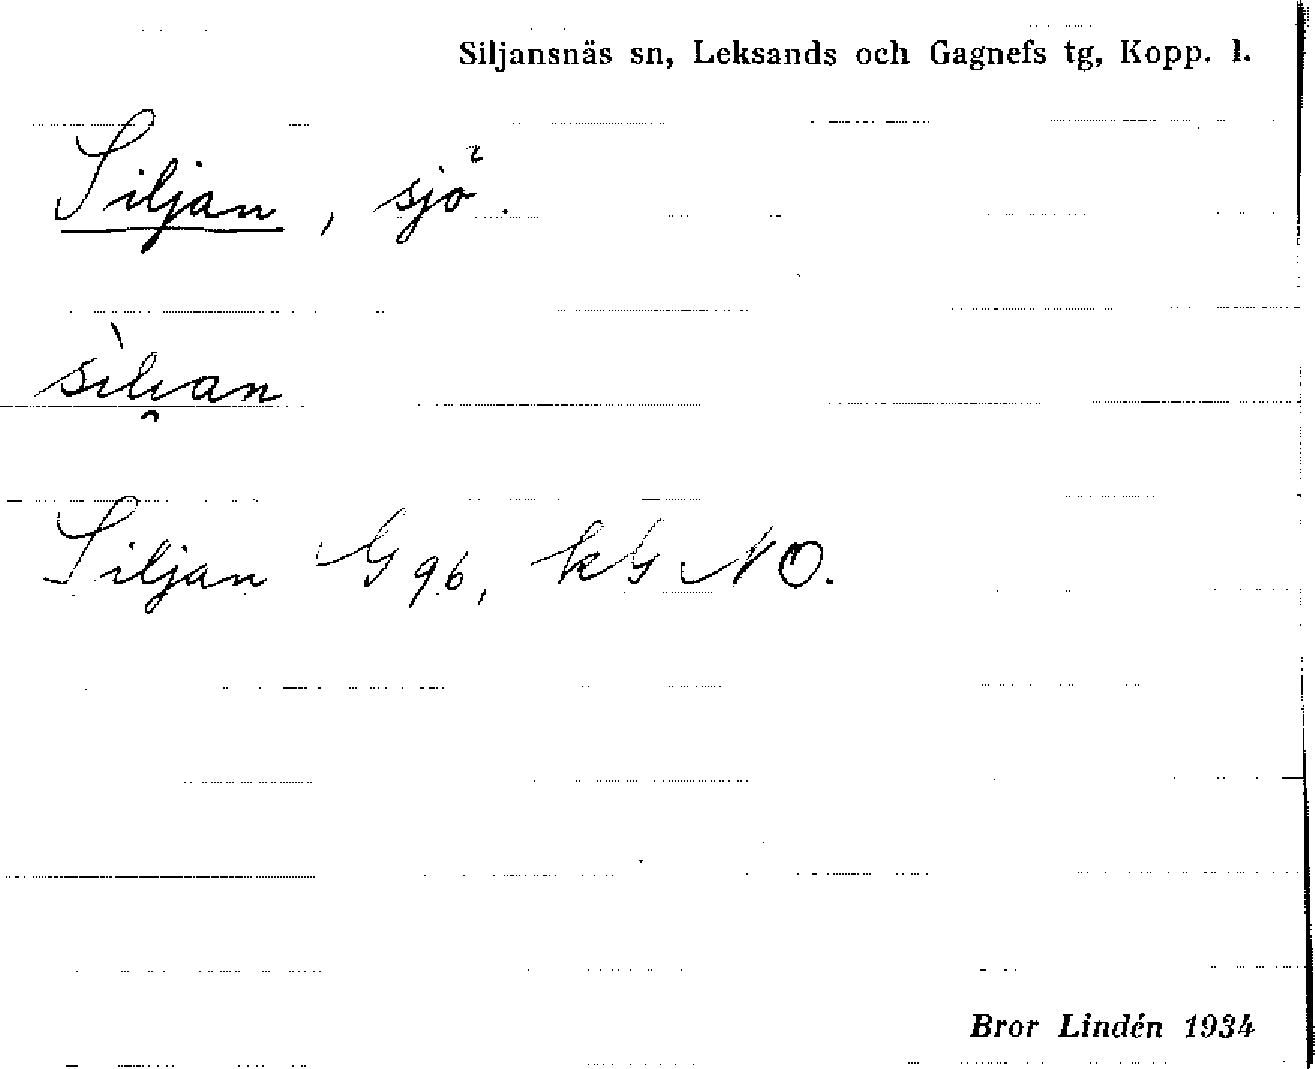 Siljansnäs sn, Leksands och Gagnefs tg, Kopp. l.
Siljan, sjö.
sìli̯an
Siljan G 96, kG NO.
Bror Lindén 1934